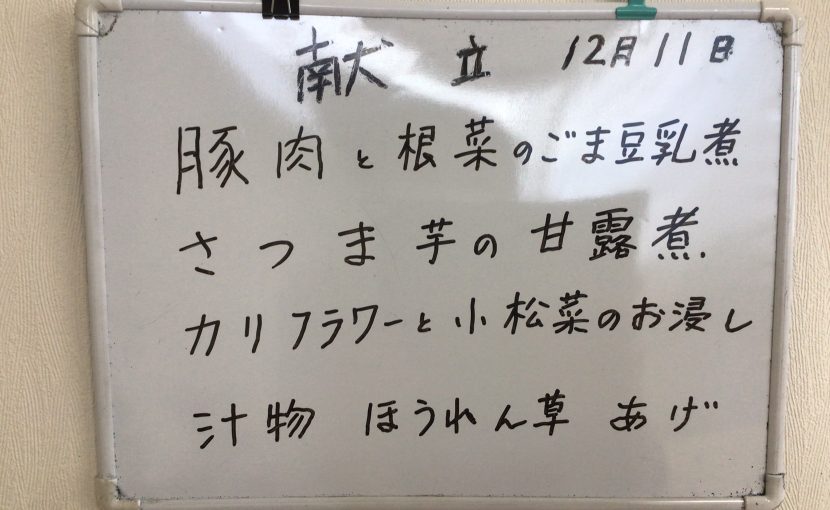 献立 12月11日
豚肉と根菜のごま豆乳煮
さつま芋の甘露煮
カリフラワーと小松菜のお浸し
汁物 ほうれん草 あげ